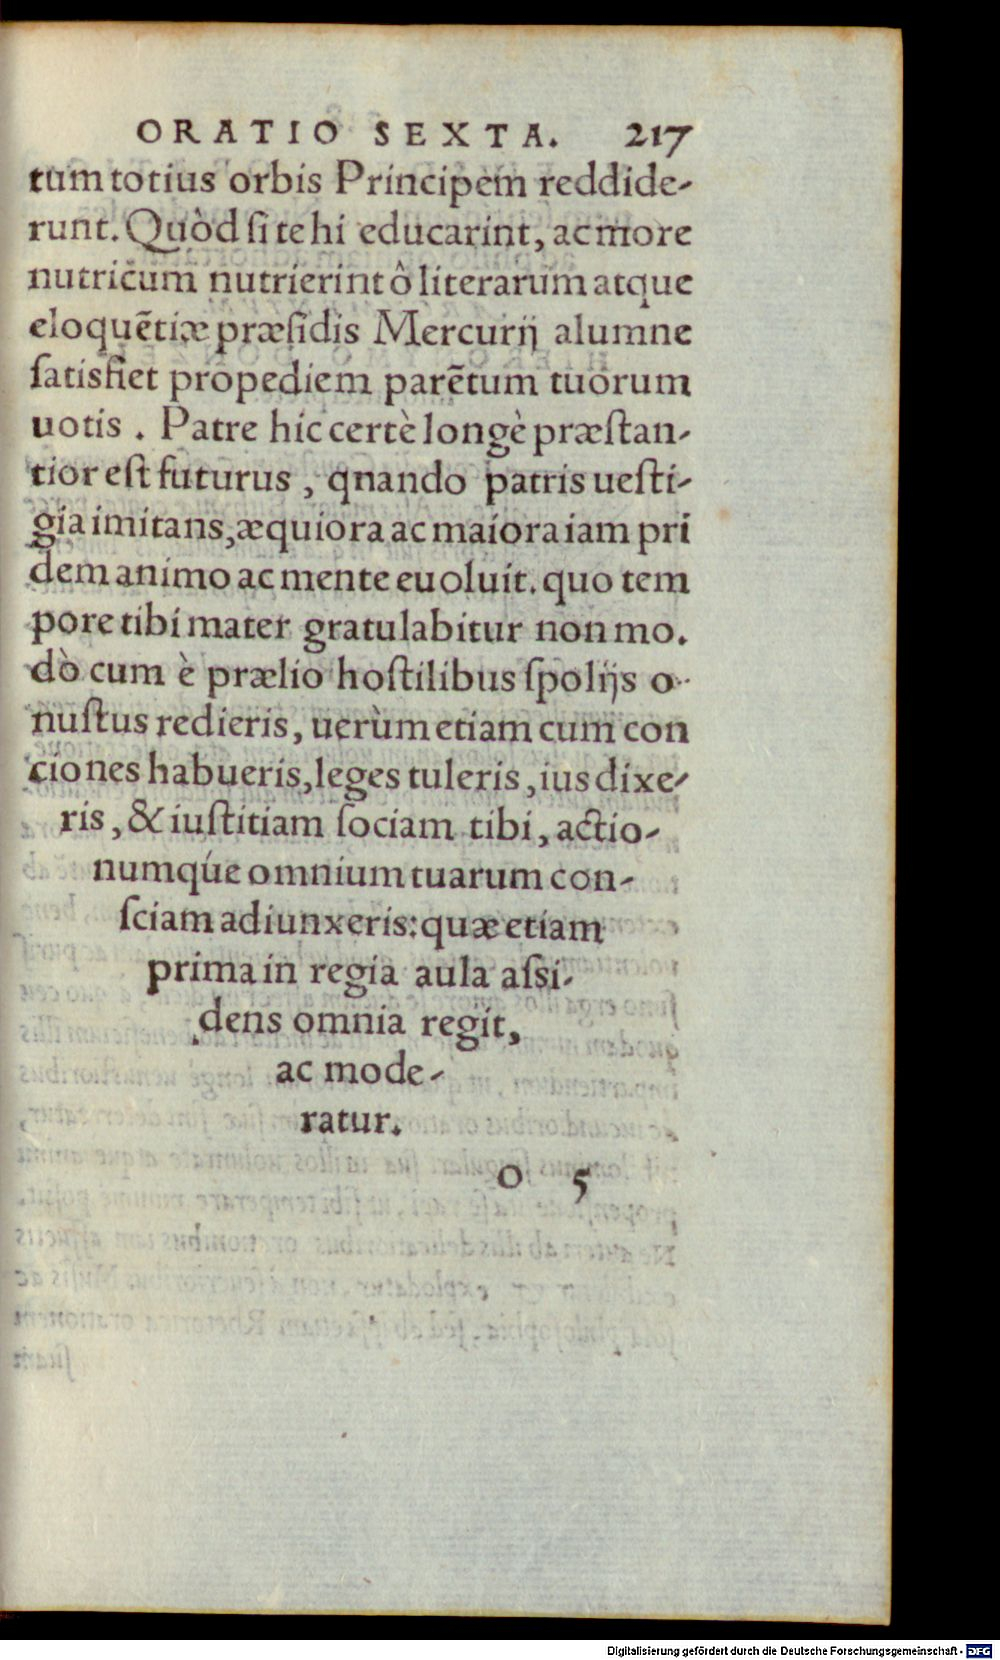 ORATIO SEXTA. 217
tum totius orbis Principem reddide-
runt. Quòd si te hi educarint, ac more
nutricum nutrierint ô literarum atque
eloquẽtiæ præsidis Mercurij alumne
satisfiet propediem parẽtum tuorum
uotis . Patre hic certè longè præstan-
tior est futurus , qnando patris uesti-
gia imitans, æquiora ac maiora iam pri
dem animo ac mente euoluit. quo tem
pore tibi mater gratulabitur non mo.
dò cum è prælio hostilibus spolijs o-
nustus redieris, uerùm etiam cum con
ciones habueris, leges tuleris, ius dixe-
ris, & iustitiam sociam tibi, actio-
numqúe omnium tuarum con-
sciam adiunxeris: quæ etiam
prima in regia aula assi-
dens omnia regit,
ac mode-
ratur.
O 5
Digitalisierung gefördert durch die Deutsche Forschungsgemeinschaft - DFG